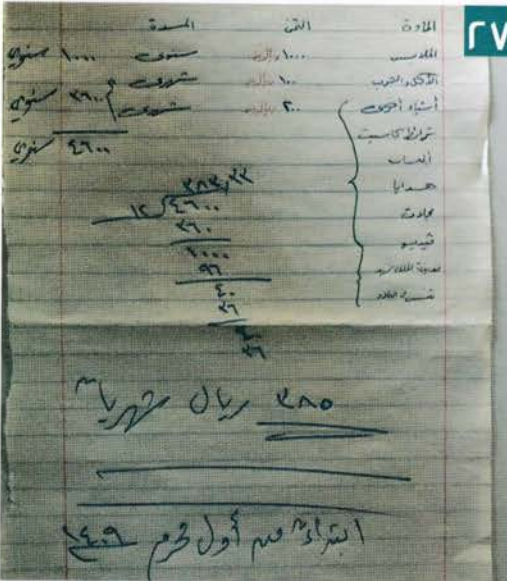 ٢٧
المادة الثمن المدة
الملابس ١٠٠٠ ريال سنوى ١٠٠٠ سنوي
الأكل والشرب ١٠٠ ريال شهرى
أشياء أخرى ٢٠٠ ريال شهرى ٣٦٠٠ سنوي
شرائط كاسيت ٤٦٠٠ سنوي
ألعاب
هدايا
مجلات
فيديو
٣٨٣,٣٣
١٢ ٤٦٠٠
٣٦٠
١٠٠٠
٩٦
٤٠
٣٦
٤٠
٣٦
٣٨٥ ريال شهرياً
ابتداءً من أول محرم ١٤٠٩